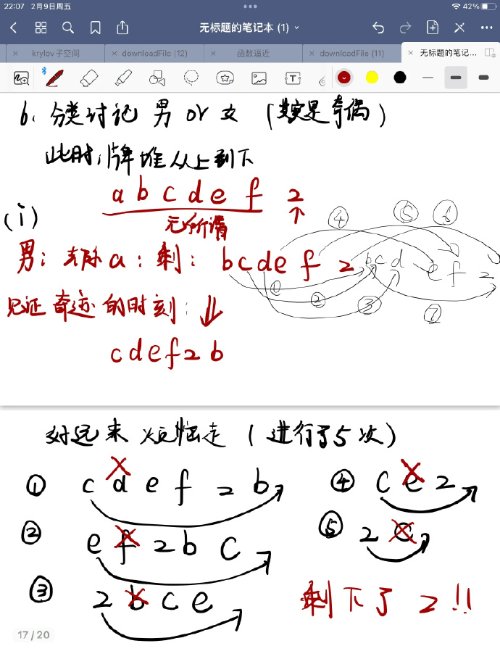 22:07 2月9日周五
42%
无标题的笔记本 (1)
krylov子空间
downloadFile (12)
函数逼近
downloadFile (11)
无标题的笔记...
6. 分类讨论 男 or 女 (其实是奇偶)
此时, 牌堆从上到下
a b c d e f 2
无所谓
(i)
男: 去除a: 剩: b c d e f 2
b c d e f 2
① ② ③ ④ ⑤ ⑥ ⑦
见证奇迹的时刻: ↓
c d e f 2 b
好运来 烦恼走 (进行了5次)
① c d e f 2 b
② e f 2 b c
③ 2 b c e
④ c e 2
⑤ 2 c
剩下了 2!!
17 / 20